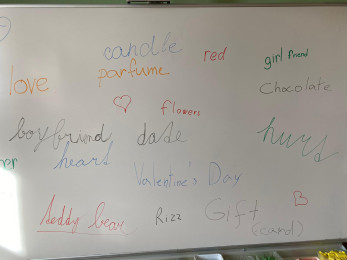 candle
red
girl friend
love
parfume
Chocolate
flowers
boyfriend
date
hugs
heart
Valentine's Day
teddy bear
Rizz
Gift
(card)
B